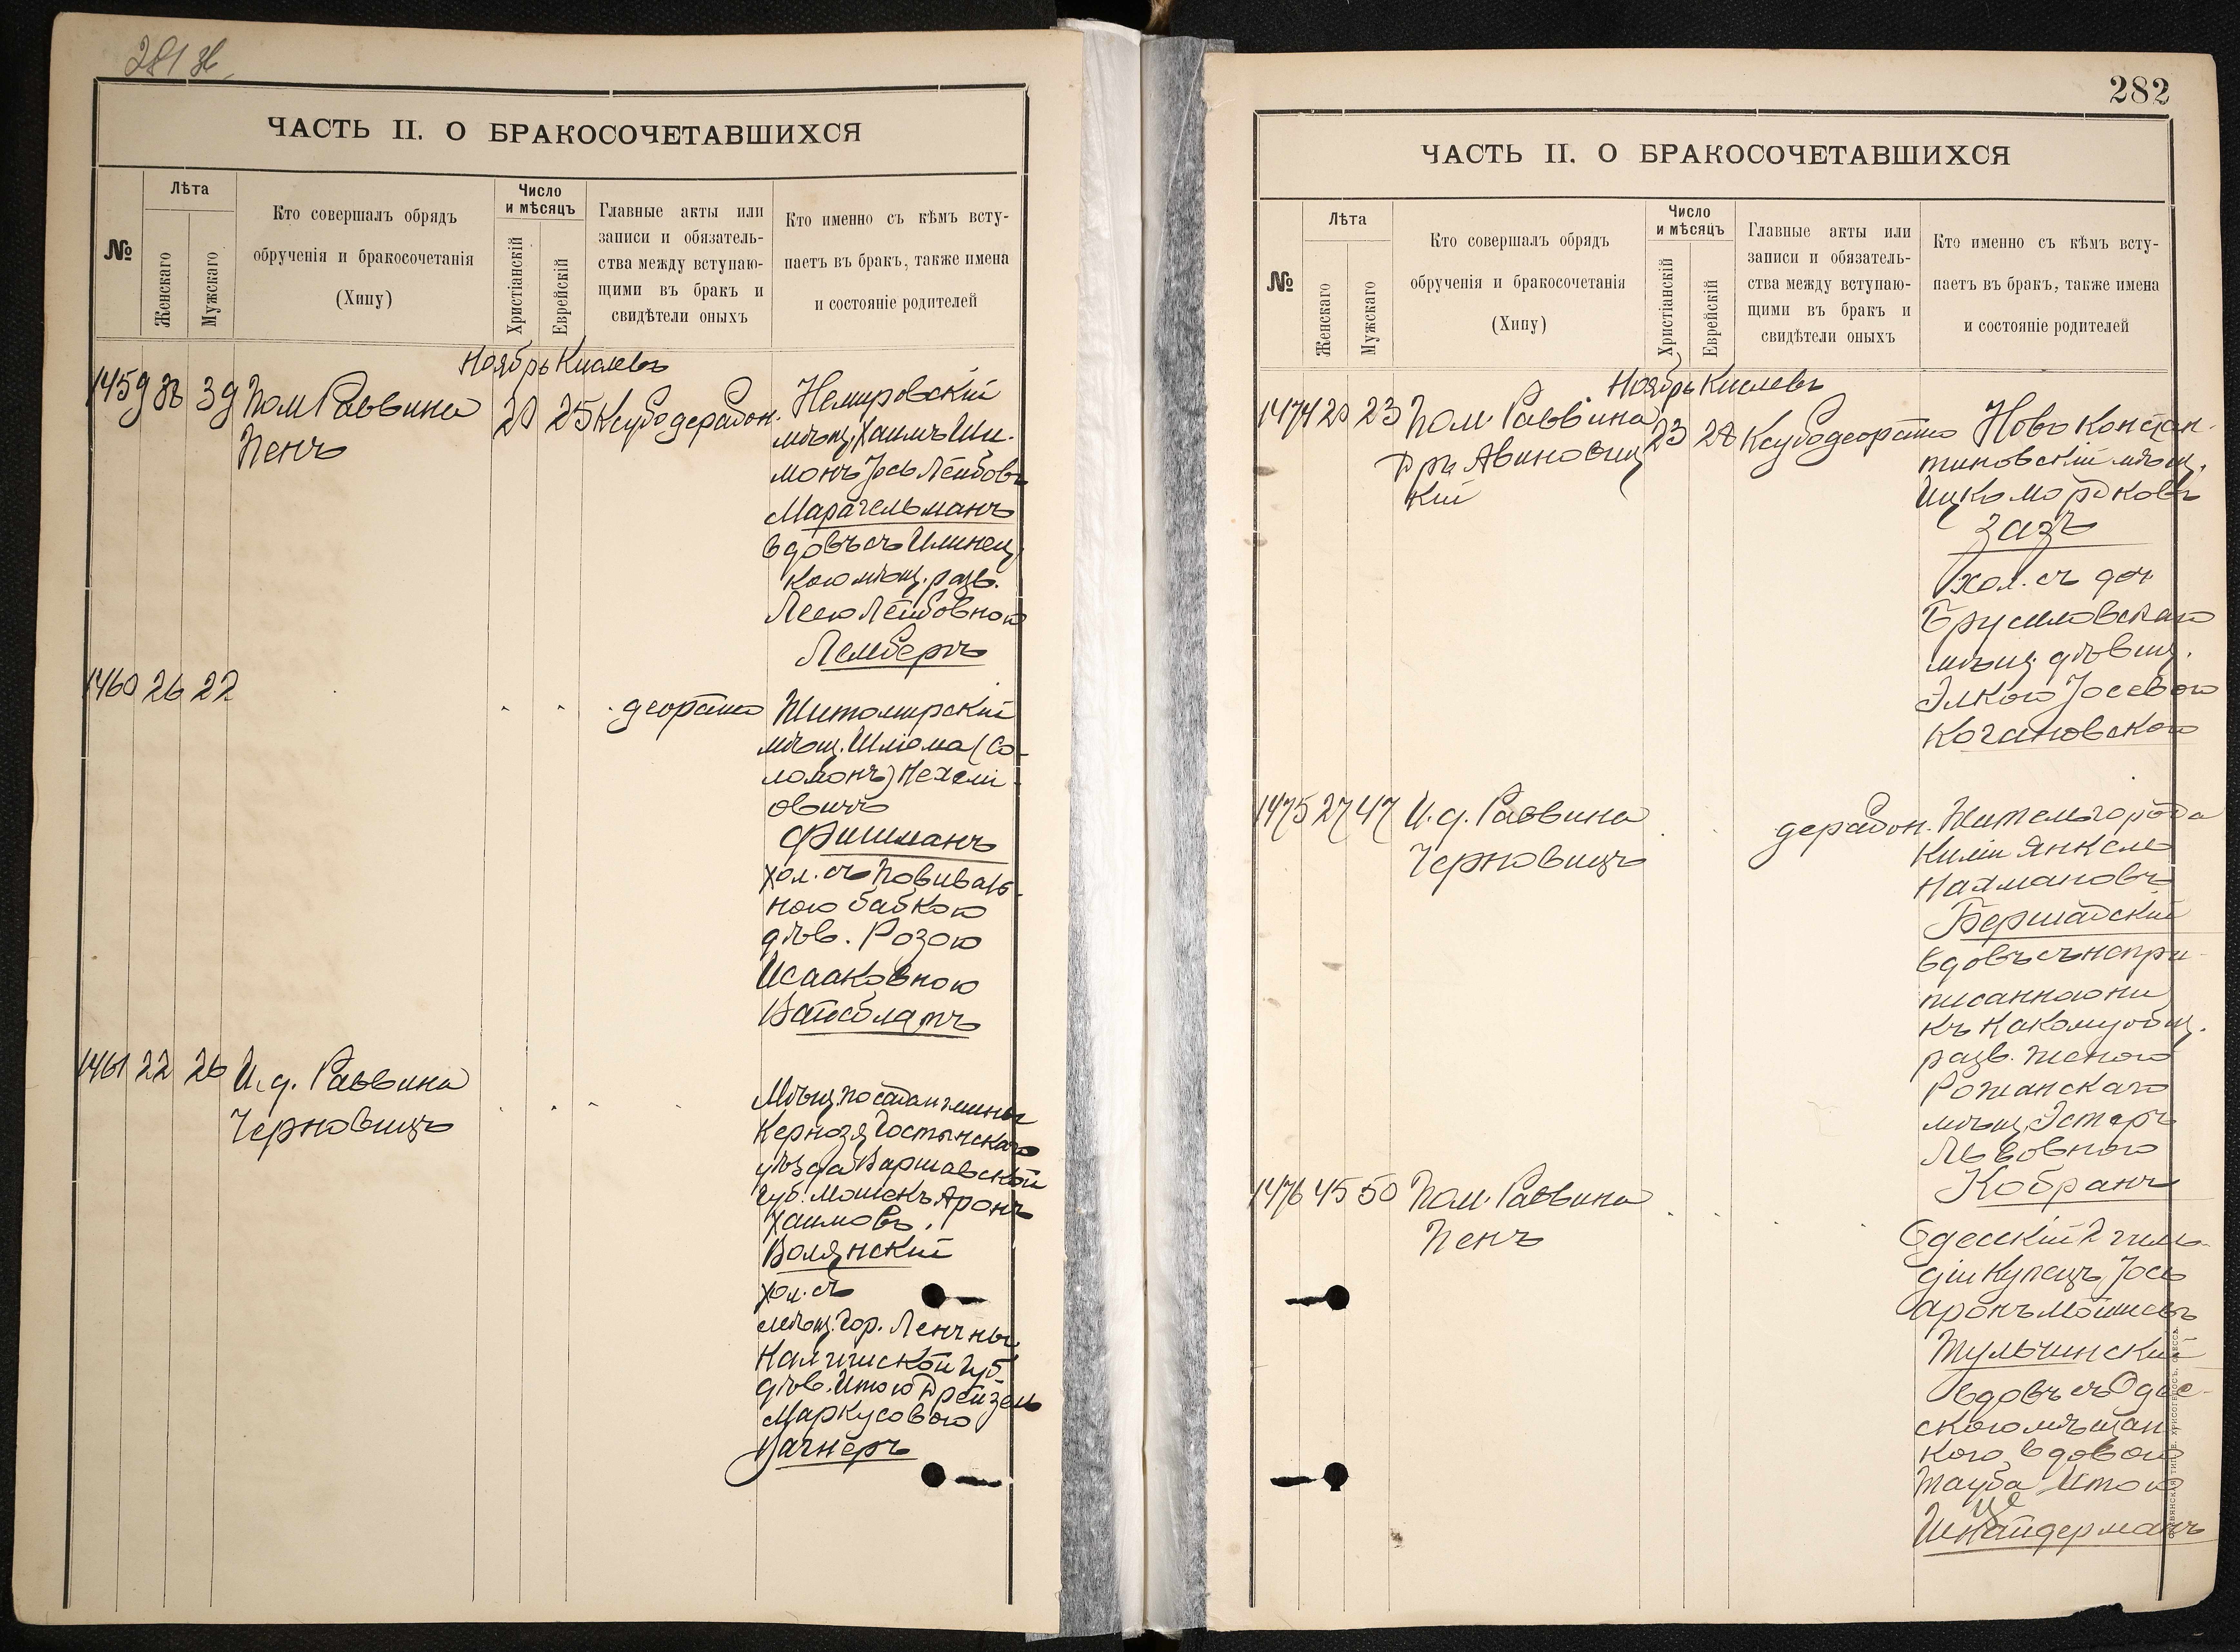 281 об
ЧАСТЬ II. О БРАКОСОЧЕТАВШИХСЯ
№
Лѣта
Женскаго
Мужскаго
Кто совершалъ обрядъ
обрученія и бракосочетанія
(Хипу)
Число
и мѣсяцъ
Христіанскій
Еврейскій
Главные акты или
записи и обязатель-
ства между вступаю-
щими въ бракъ и
свидѣтели оныхъ
Кто именно съ кѣмъ всту-
паетъ въ бракъ, также имена
и состояніе родителей
Ноябрь Кислевъ
1459 39 Пом Раввина
Пенъ
20 25 Ксубодерабон.
Немировскій
мѣщ. Хаимъ Ши-
монъ Іось Лейбовъ
Марагельманъ
вдовъ съ Илинец
кою мѣщ. разв.
Леею Лейбовною
Лембергъ
1460 26 22
деорайто
Житомирскій
мѣщ. Шліома (Со-
ломонъ) Нехемі-
овичъ
Фишманъ
хол. съ повиваль-
ною бабкою
дѣв. Розою
Исааковною
Вайсблатъ
1461 22 26 И. д. Раввина
Черновицъ
Мѣщ. посада гмины
Кернозя Гостынскаго
уѣзда Варшавской
губ. Мошекъ Аронъ
Хаимовъ
Волянскій
хол. съ
мѣщ. гор. Ленчны
Калишской губ.
дѣв. Итою Дрейзель
Маркусовою
Вагнеръ
282
ЧАСТЬ II. О БРАКОСОЧЕТАВШИХСЯ
№
Лѣта
Женскаго
Мужскаго
Кто совершалъ обрядъ
обрученія и бракосочетанія
(Хипу)
Число
и мѣсяцъ
Христіанскій
Еврейскій
Главные акты или
записи и обязатель-
ства между вступаю-
щими въ бракъ и
свидѣтели оныхъ
Кто именно съ кѣмъ всту-
паетъ въ бракъ, также имена
и состояніе родителей
Ноябрь Кислевъ
1474 20 23 Пом. Раввина
Д-ръ Авиновиц
кій
23 28 Ксубодеорайто
Ново Констан-
тиновскій мѣщ.
Ицко Мордковъ
Зазъ
хол. съ доч.
Брусиловскаго
мѣщ. дѣвиц.
Элкою Іосевою
Когановскою
1475 27 47 И. д. Раввина
Черновицъ
дерабон.
Житель города
Киліи Янкель
Нахмановъ
Бершадскій
вдовъ съ непри-
писанною ни
къ какому общ.
разв. женою
Рожанскаго
мѣщ. Эстеръ
Львовною
Кобранъ
1476 45 50 Пом. Раввина
Пенъ
Одесскій 2 гиль-
діи купецъ Іось
Аронъ Мошковъ
Тульчинскій
вдовъ съ Одес-
скою мѣщан
кою вдовою
Тауба Итою
Шнайдерманъ
СЛАВЯНСКАЯ ТИП. Е. ХРИСОГЕЛОСЪ. ОДЕССА.